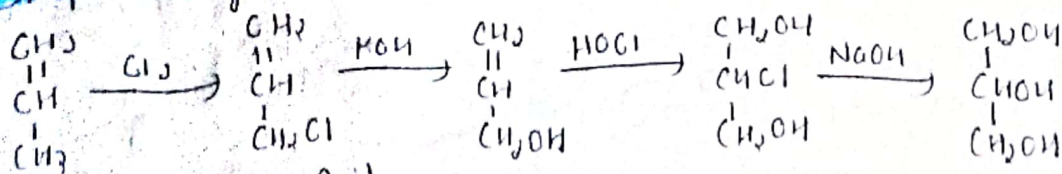 CH₂ = CH - CH₃ —Cl₂→ CH₂ = CH - CH₂Cl —KOH→ CH₂ = CH - CH₂OH —HOCl→ CH₂OH - CHCl - CH₂OH —NaOH→ CH₂OH - CHOH - CH₂OH